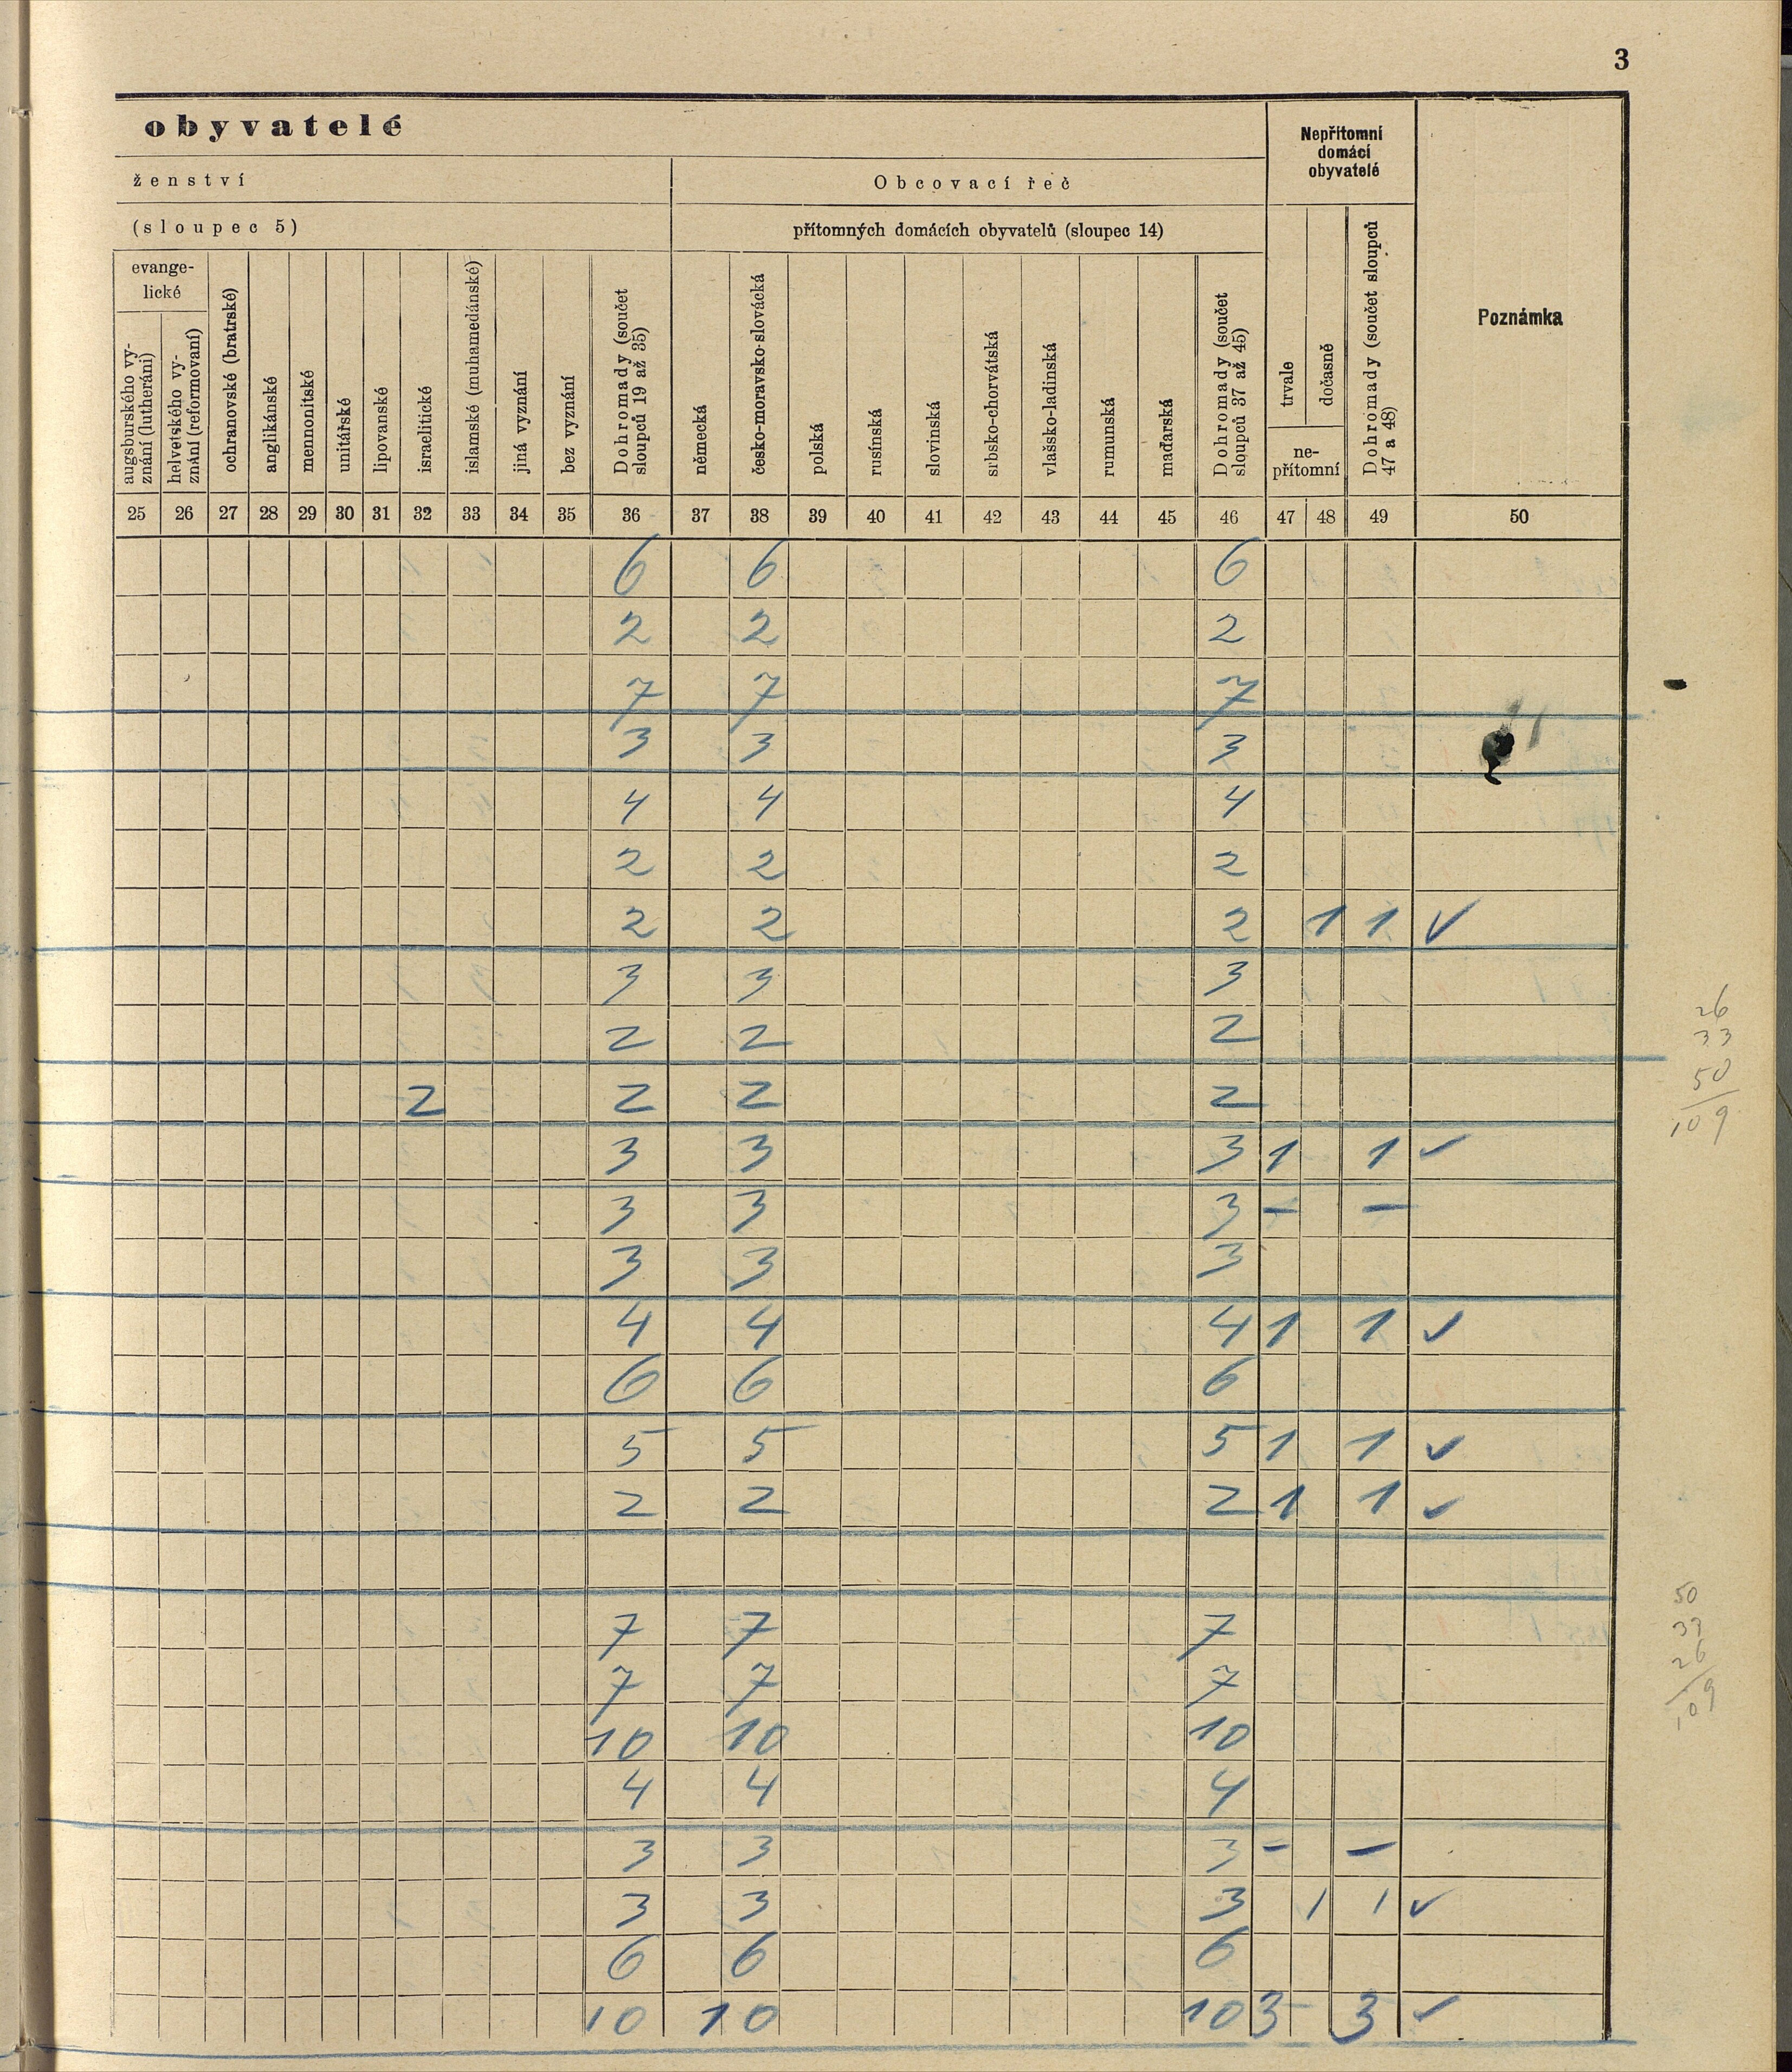 3
obyvatelé
Nepřítomní
domácí
obyvatelé
Poznámka
ženství
Obcovací řeč
(sloupec 5)
přítomných domácích obyvatelů (sloupec 14)
evange-
lické
augsburského vy-
znání (lutheráni)
helvetského vy-
znání (reformovaní)
ochranovské (bratrské)
anglikánské
mennonitské
unitářské
lipovanské
israelitické
islamské (muhamedánské)
jiná vyznání
bez vyznání
Dohromady (součet
sloupců 19 až 35)
německá
česko-moravsko-slovácká
polská
rusínská
slovinská
srbsko-chorvátská
vlašsko-ladinská
rumunská
maďarská
Dohromady (součet
sloupců 37 až 45)
trvale
dočasně
ne-
přítomní
Dohromady (součet sloupců
47 a 48)
25 26 27 28 29 30 31 32 33 34 35 36 37 38 39 40 41 42 43 44 45 46 47 48 49 50
6 6 6
2 2 2
7 7 7
3 3 3
4 4 4
2 2 2
2 2 2 1 1 ✓
3 3 3
2 2 2
2 2 2 2
3 3 3 1 1 ✓
3 3 3 – –
3 3 3
4 4 4 1 1 ✓
6 6 6
5 5 5 1 1 ✓
2 2 2 1 1 ✓
7 7 7
7 7 7
10 10 10
4 4 4
3 3 3 – –
3 3 3 1 1 ✓
6 6 6
10 10 10 3 3 ✓
26
33
50
109
50
33
26
109